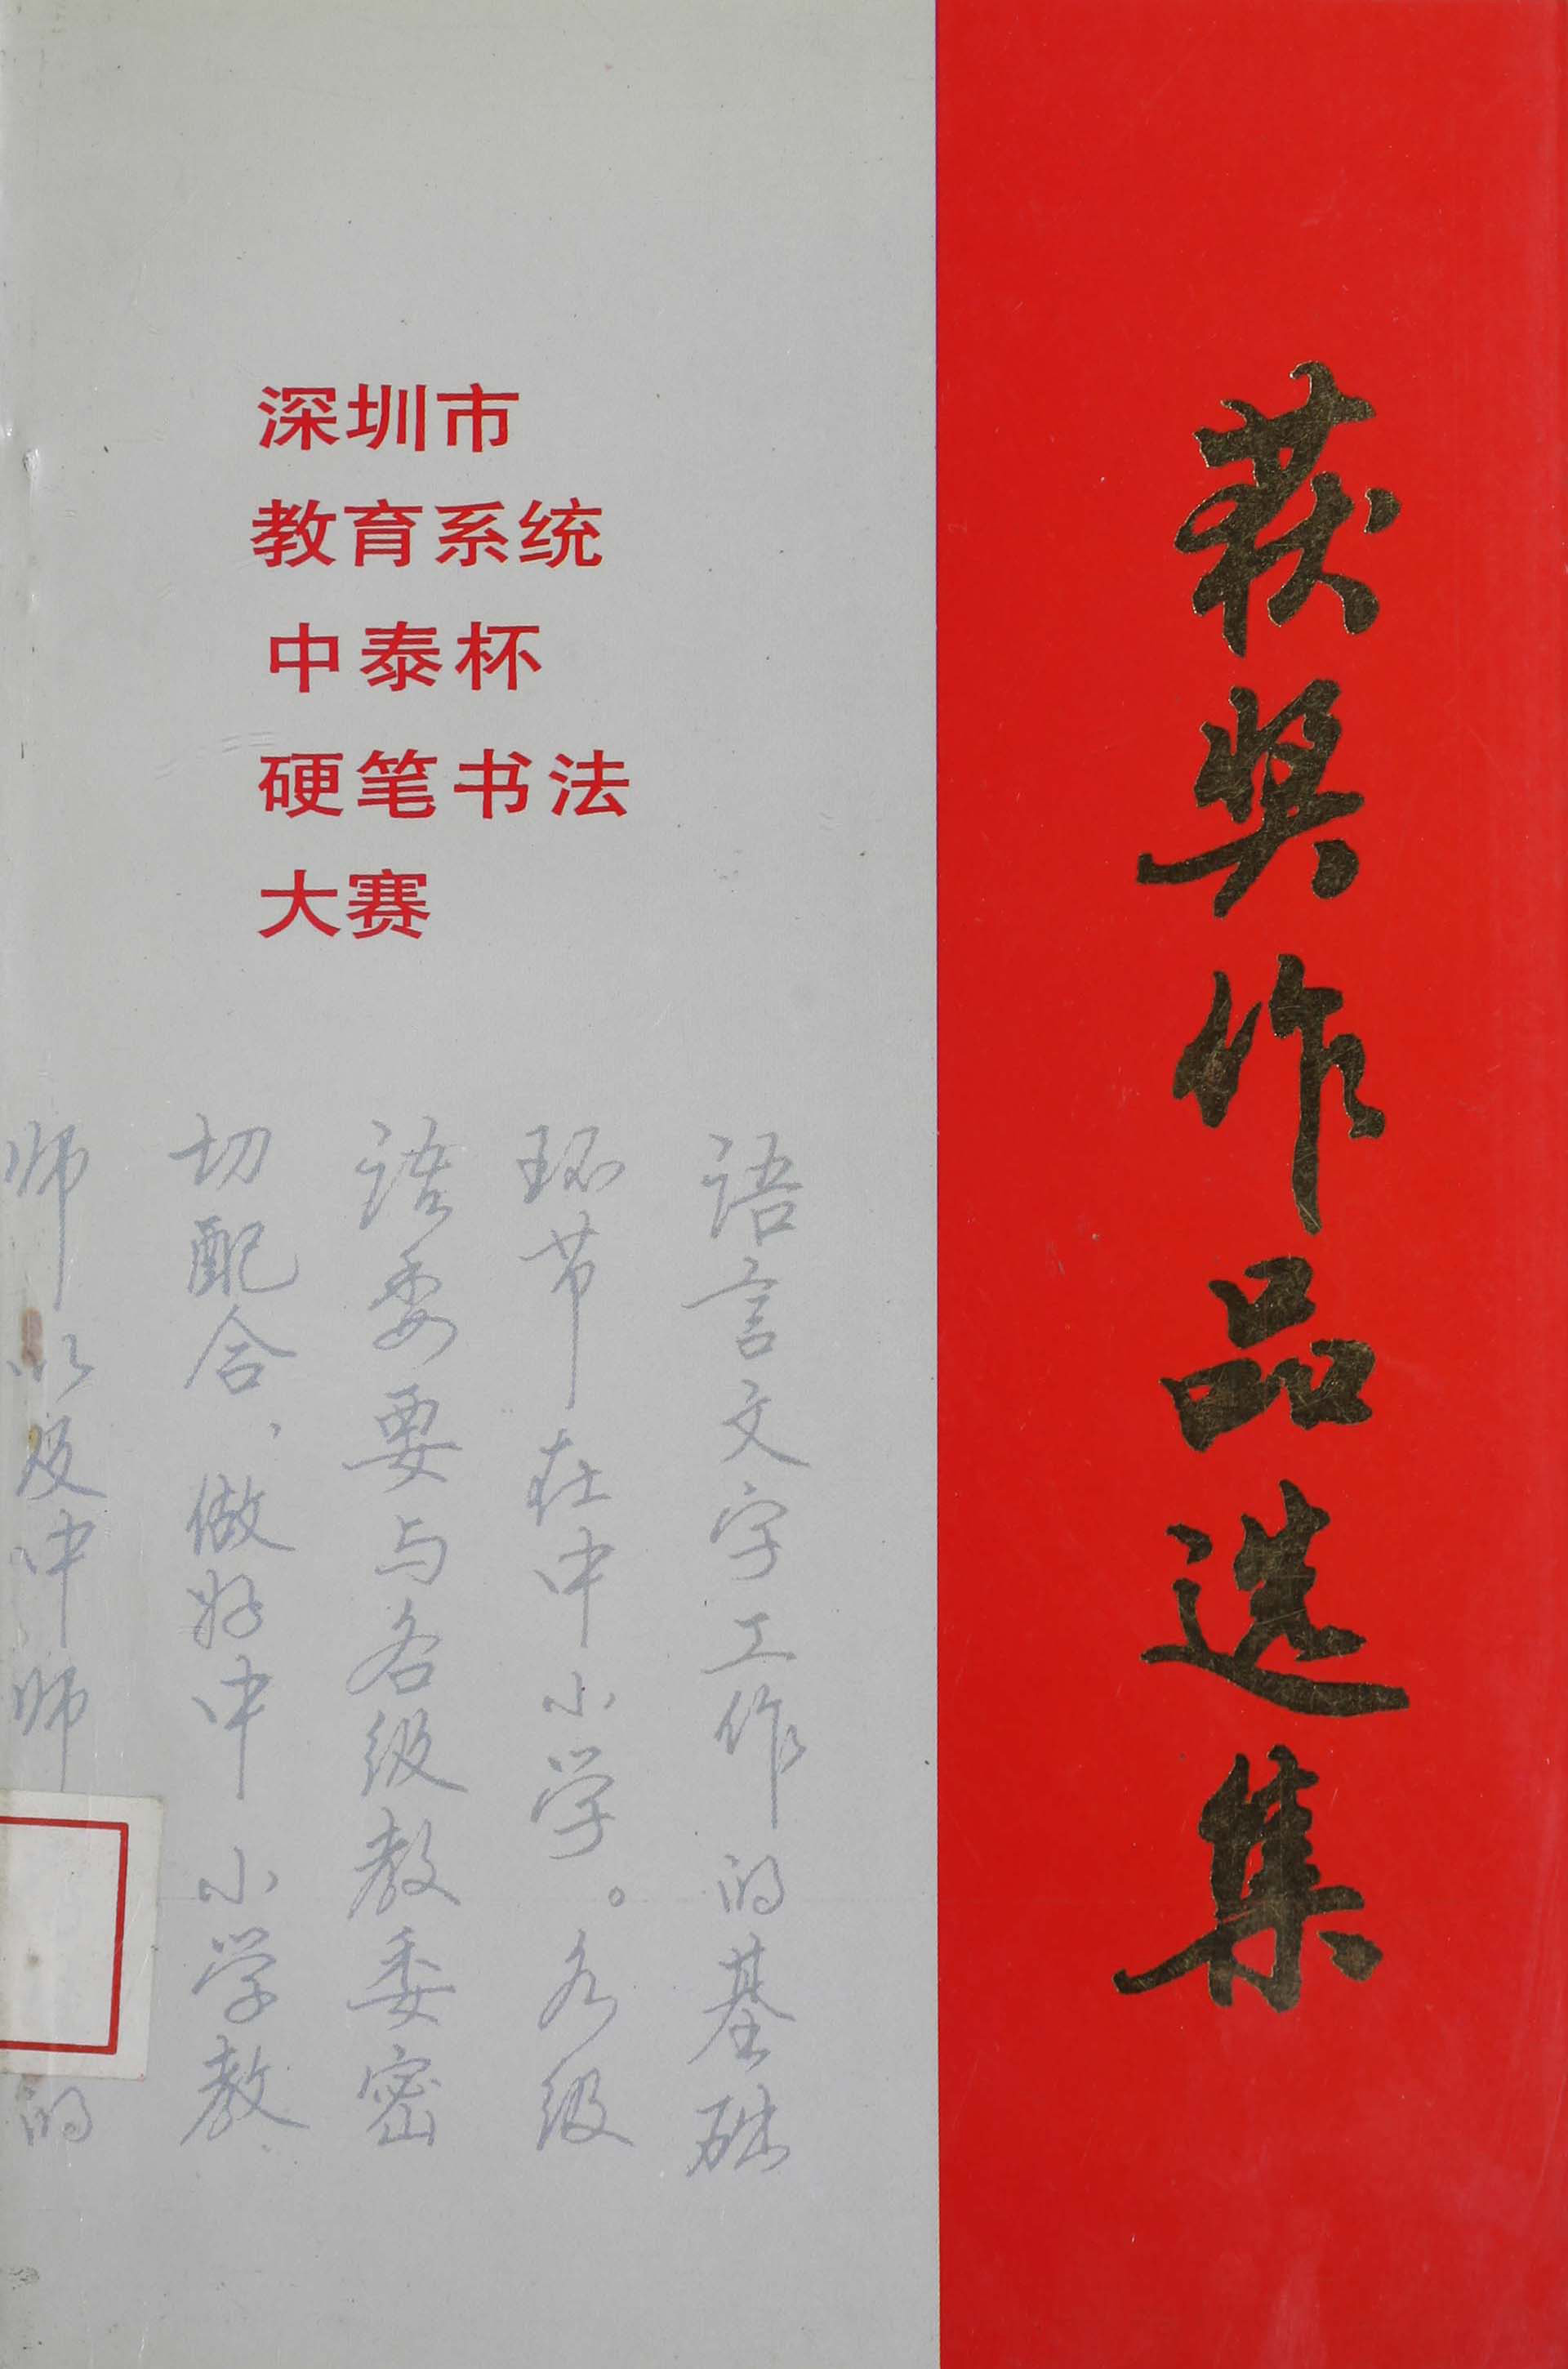 获奖作品选集
深圳市
教育系统
中泰杯
硬笔书法
大赛
语言文字工作的基础
环节在中小学。各级
语委要与各级教委密
切配合、做好中小学教
师以及中师 的